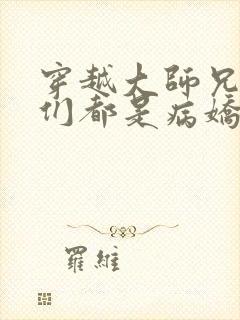 穿越大師兄
们都是病嬌
羅維